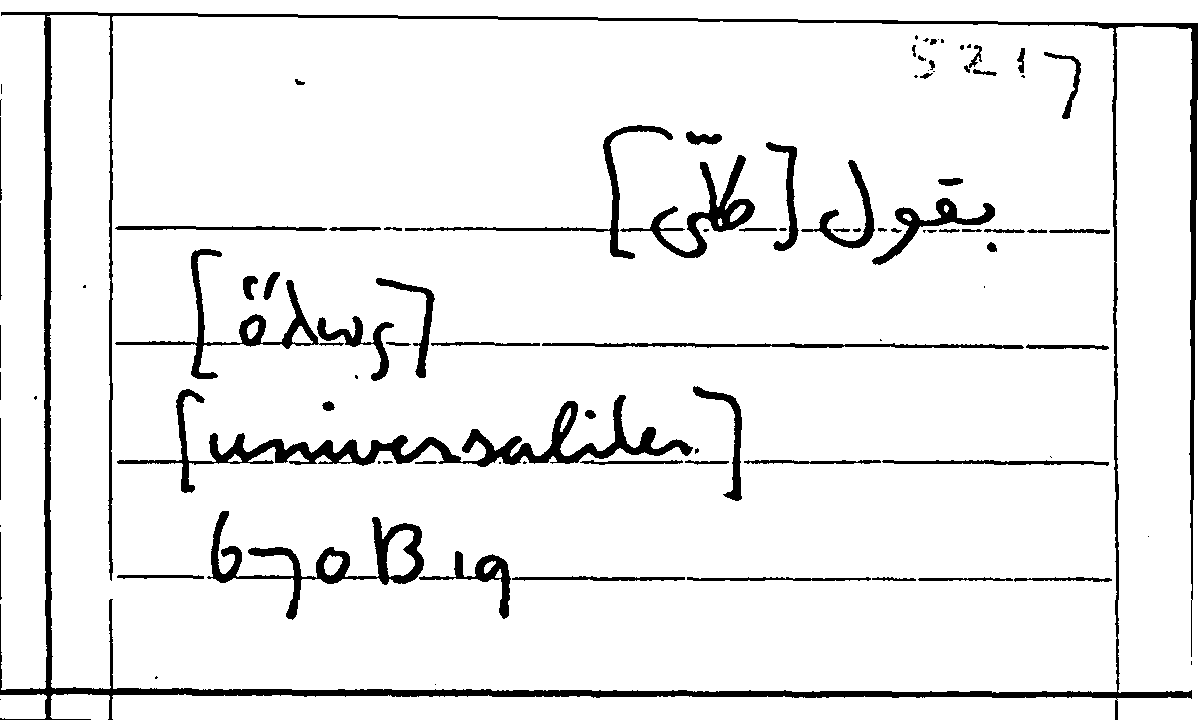 5217
بقول [كلّي]
[ὅλως]
[universaliter]
670 B 19